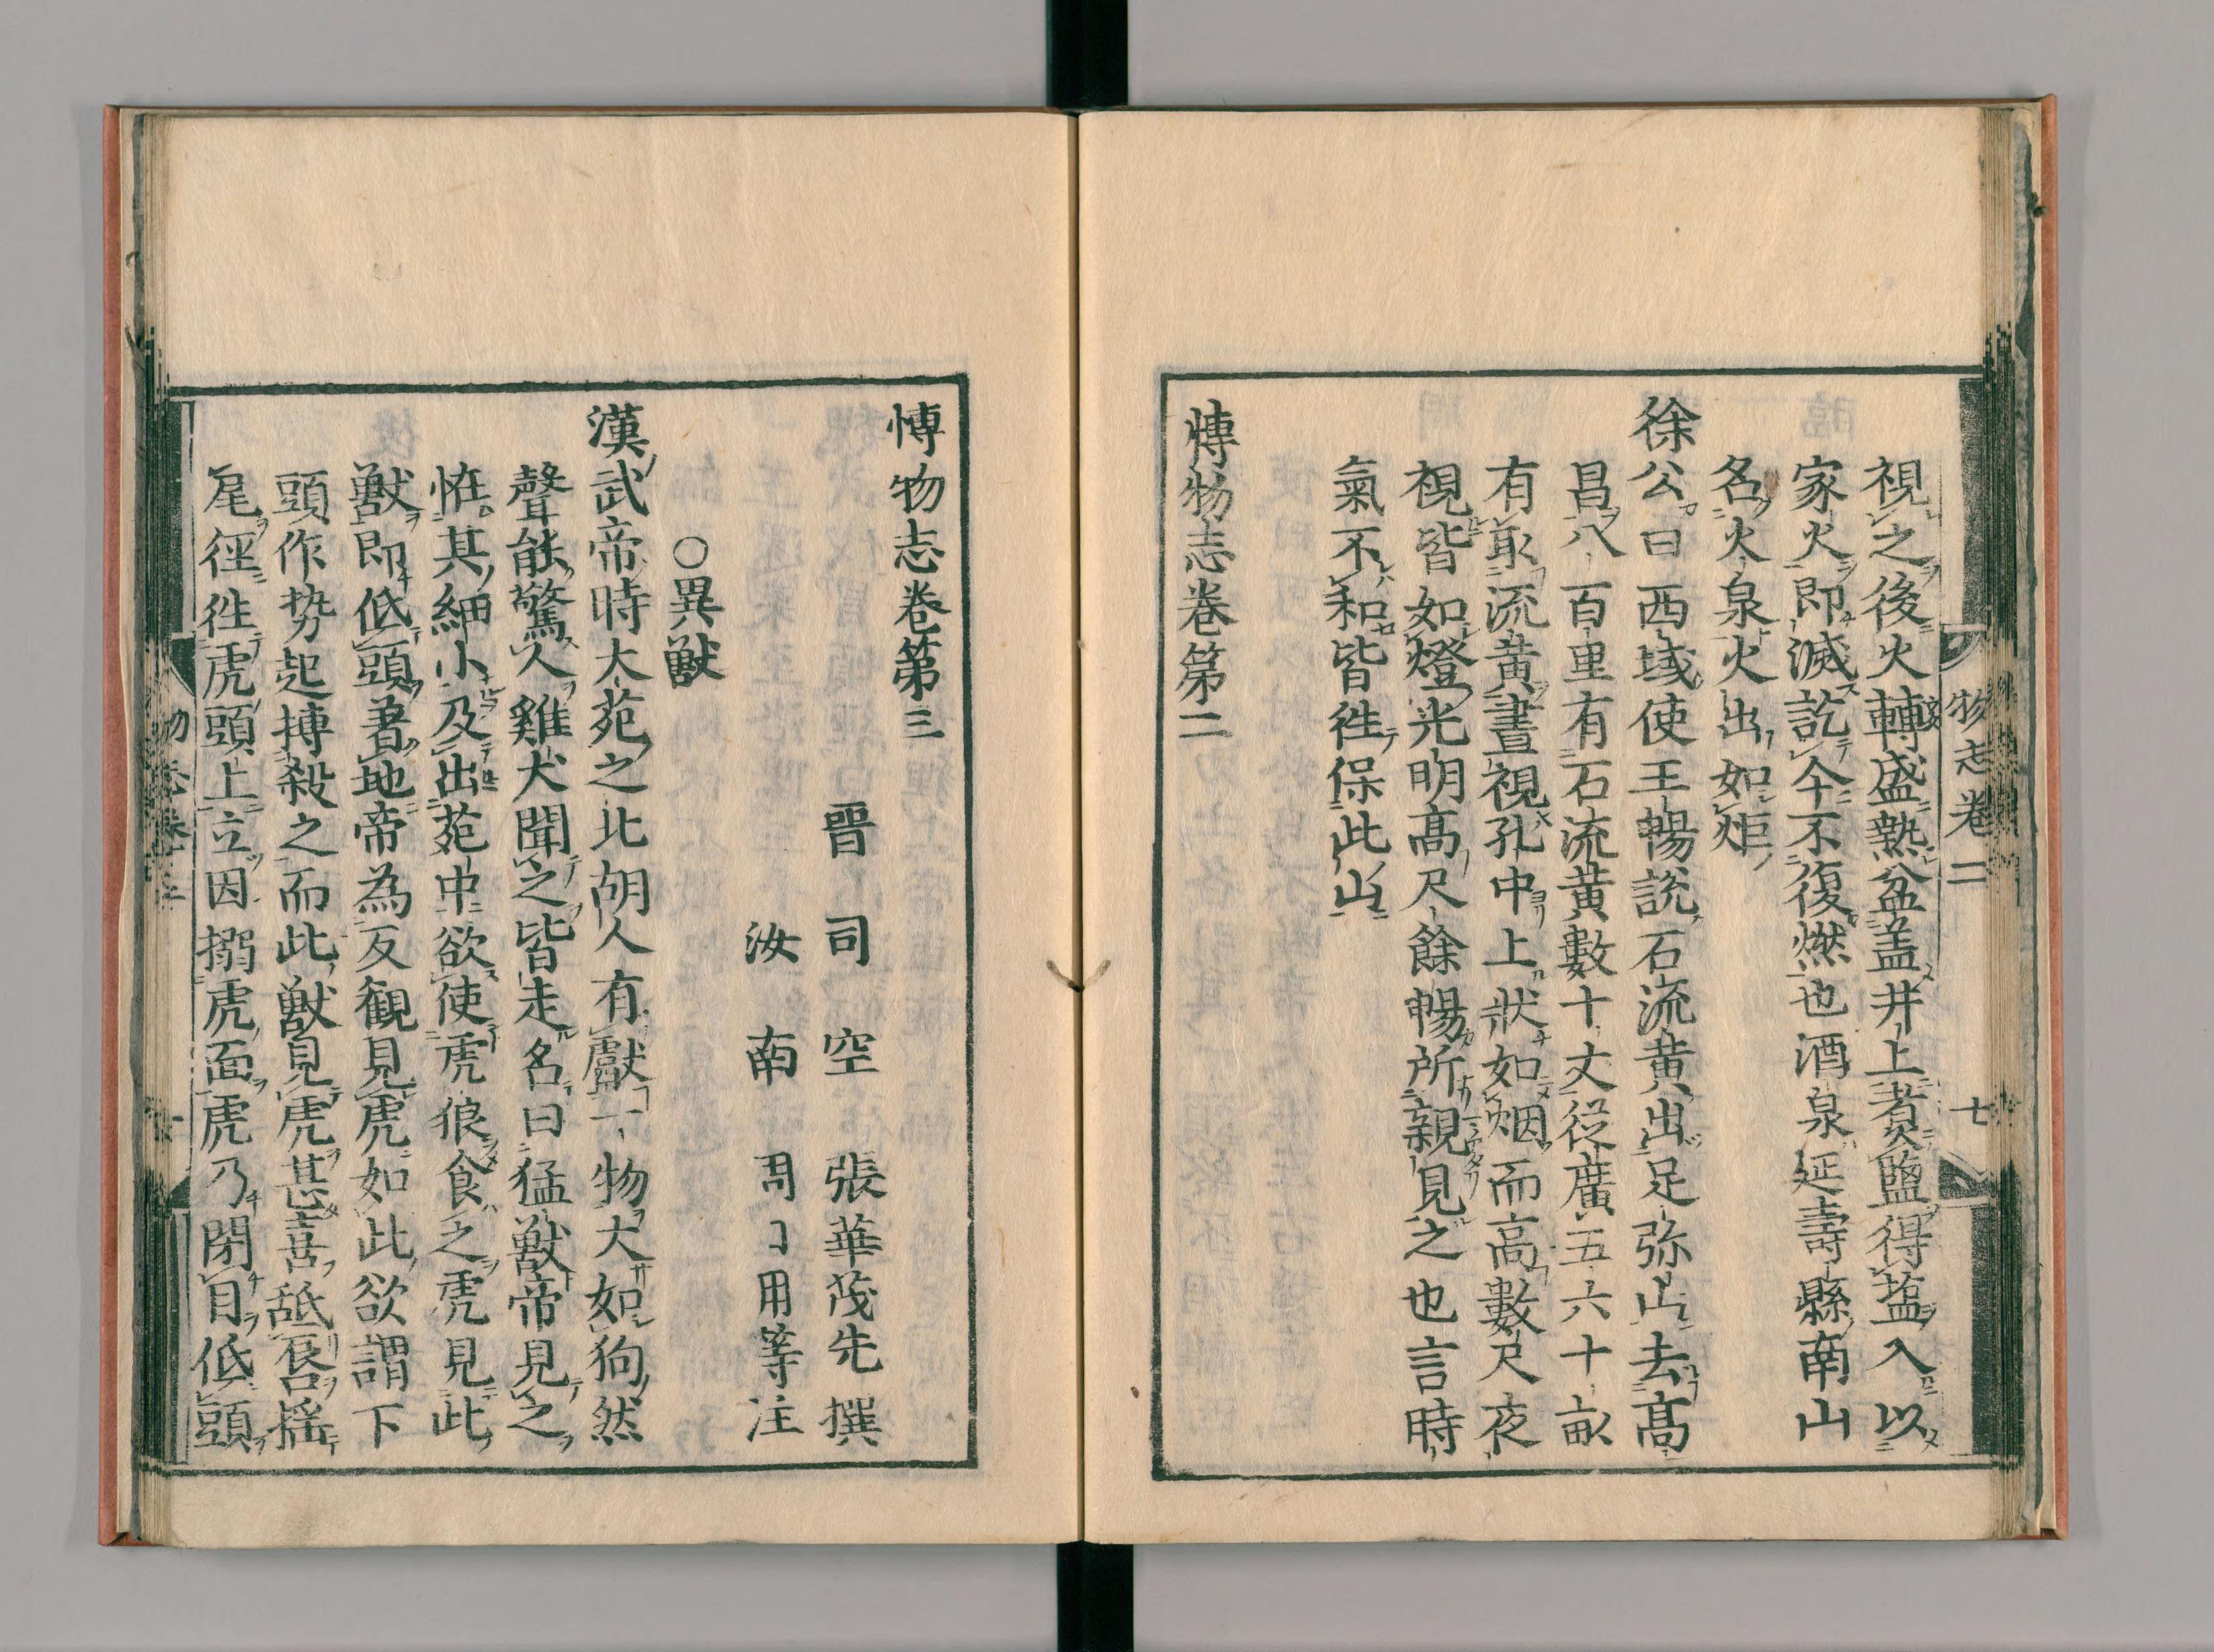 視之後火轉盛熱盆盖井上煑鹽得塩入以
家火即滅訖今不復燃也酒泉延壽縣南山
名火泉火出如炬
徐公曰西域使王暢說石流黄出足弥山去髙
昌八百里有石流黄數十丈從廣五六十畝
有取流黄晝視孔中上狀如烟而高數尺夜
視皆如燈光明髙尺餘暢所親見之也言時
氣不和皆徃保此山
博物志卷第二
物志卷二
七
博物志卷第三
晋司空張華茂先撰
汝南周日用等注
○異獣
漢武帝時大苑之北胡人有獻一物大如狗然
聲能驚人雞犬聞之皆走名曰猛獣帝見之
恠其細小及出苑中欲使虎狼食之虎見此
獣即低頭著地帝為反観見虎如此欲謂下
頭作势起搏殺之而此獣見虎甚喜舐唇揺
尾徑徃虎頭上立因搦虎面虎乃閉目低頭